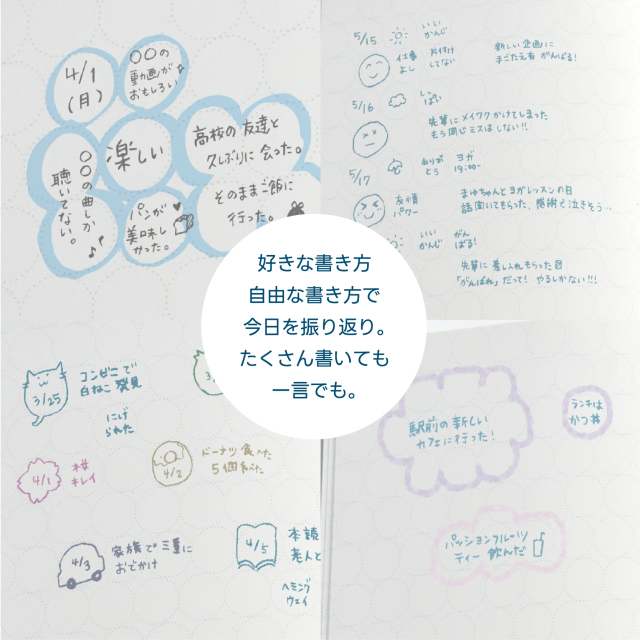 4/1
(月)
○○の
動画が
おもしろい
○○の曲しか
聴いてない。
楽しい
パンが
美味し
かった。
高校の友達と
久しぶりに会った。
そのままご飯に
行った。
5/15
いい
かんじ
仕事
よし
片付け
してない
新しい企画に
手ごたえ有 がんばる!
5/16
しっ
ぱい
先輩にメイワクかけてしまった
もう同じミスはしない!!
5/17
ありが
とう
ヨガ
19:00~
友情
パワー
まゆちゃんとヨガレッスンの日
話聞いてもらった、感謝で泣きそう…
いい
かんじ
がん
ばる!
先輩に差し入れもらった日
「がんばれ」だって! やるしかない!!!
好きな書き方
自由な書き方で
今日を振り返り。
たくさん書いても
一言でも。
3/25
コンビニで
白ねこ発見
にげ
られた
3/
4/1
桜
キレイ
4/2
ドーナツ食べた
5個食べた
4/3
家族で三重に
おでかけ
4/5
本読
老人と
ヘミング
ウェイ
駅前の新しい
カフェに行った!
ランチは
かつ丼
パッションフルーツ
ティー飲んだ